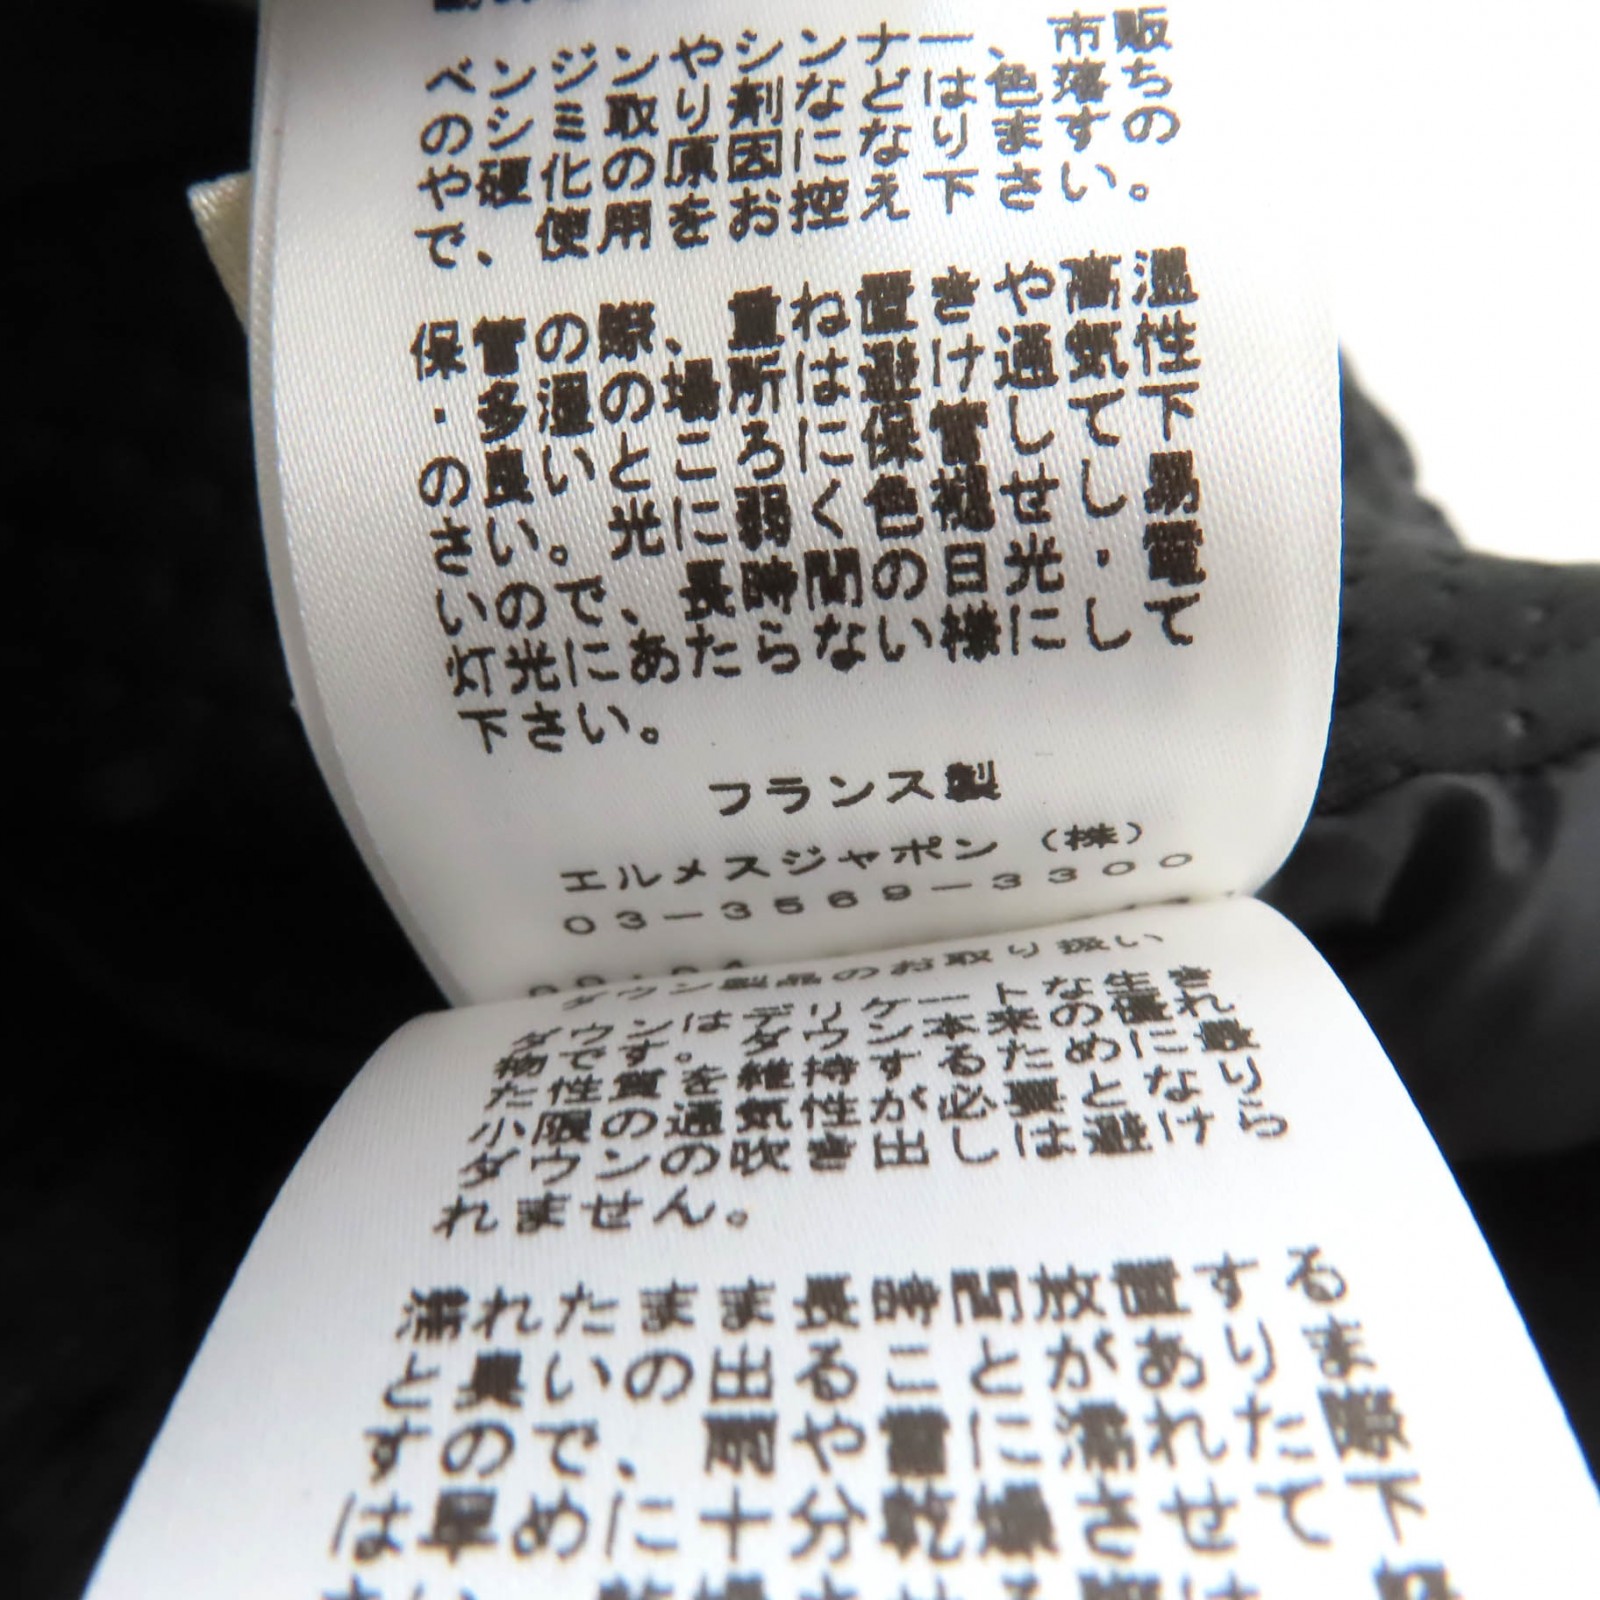 ベンジンやシンナー、市販
のシミ取り剤などは色落ち
や硬化の原因になりますの
で、使用をお控え下さい。
保管の際、重ね置きや高温
・多湿の場所は避け通気性
の良いところに保管して下
さい。光に弱く褪色し易
いので、長時間の日光・電
灯光にあたらない様にして
下さい。
フランス製
エルメスジャポン（株）
03-3569-3300
ダウン製品のお取り扱い
ダウンはデリケートな生き
物です。ダウン本来の優れ
た性質を維持するために最
小限の通気性が必要となり
ダウンの吹き出しは避けら
れません。
濡れたまま長時間放置する
と臭いの出ることがありま
すので、雨や雪に濡れた際
は早めに十分乾燥させて下